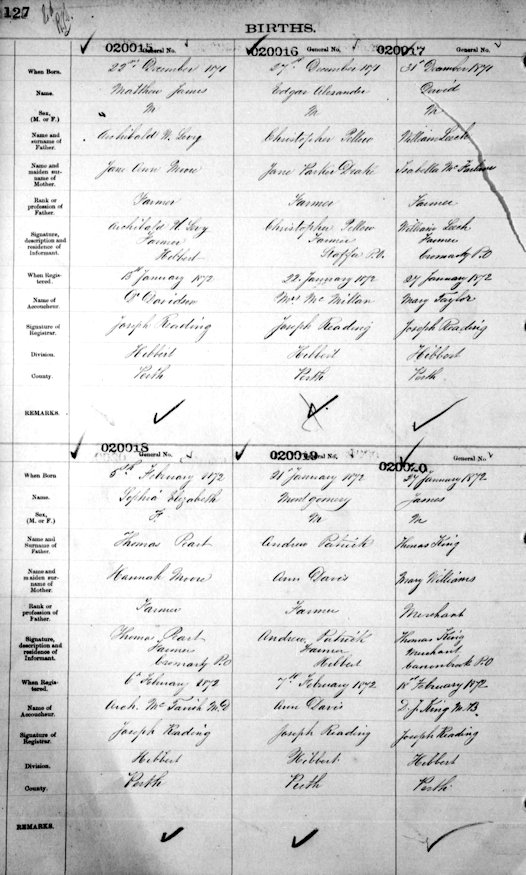 127
BIRTHS.
020015 General No.
020016 General No.
020017 General No.
When Born. 22nd December 1871 27th December 1871 31st December 1871
Name. Matthew James Edgar Alexander David
Sex, (M. or F.) M M M
Name and surname of Father. Archibald W. Levy Christopher Pellow William Leech
Name and maiden surname of Mother. Jane Ann Moore Jane Parker Drake Isabella
Rank or profession of Father. Farmer Farmer Farmer
Signature, description and residence of Informant. Archibald W. Levy Christopher Pellow William Leech
Farmer Farmer Farmer
Hibbert Staffa P.O. Cromarty P.O
When Registered. 15th January 1872 22 January 1872 27 January 1872
Name of Accoucheur. Dr Davidson Mrs McMillan Mary Taylor
Signature of Registrar. Joseph Reading Joseph Reading Joseph Reading
Division. Hibbert Hibbert Hibbert
County. Perth Perth Perth
REMARKS.
020018 General No.
020019 General No.
020020 General No.
When Born 5th February 1872 21st January 1872 27 January 1872
Name. Sophia Elizabeth Montgomery James
Sex, (M. or F.) F. M M
Name and Surname of Father. Thomas Andrew Patrick Thomas King
Name and maiden surname of Mother. Hannah Moore Ann Davis Mary Williams
Rank or profession of Father. Farmer Farmer Merchant
Signature, description and residence of Informant. Thomas Andrew Patrick Thomas King
Farmer Farmer Merchant
Cromarty P.O Hibbert P.O
When Registered. 6th February 1872 7th February 1872 February 1872
Name of Accoucheur. Arch. M.D Ann Davis King M.B.
Signature of Registrar. Joseph Reading Joseph Reading Joseph Reading
Division. Hibbert Hibbert Hibbert
County. Perth Perth Perth
REMARKS.